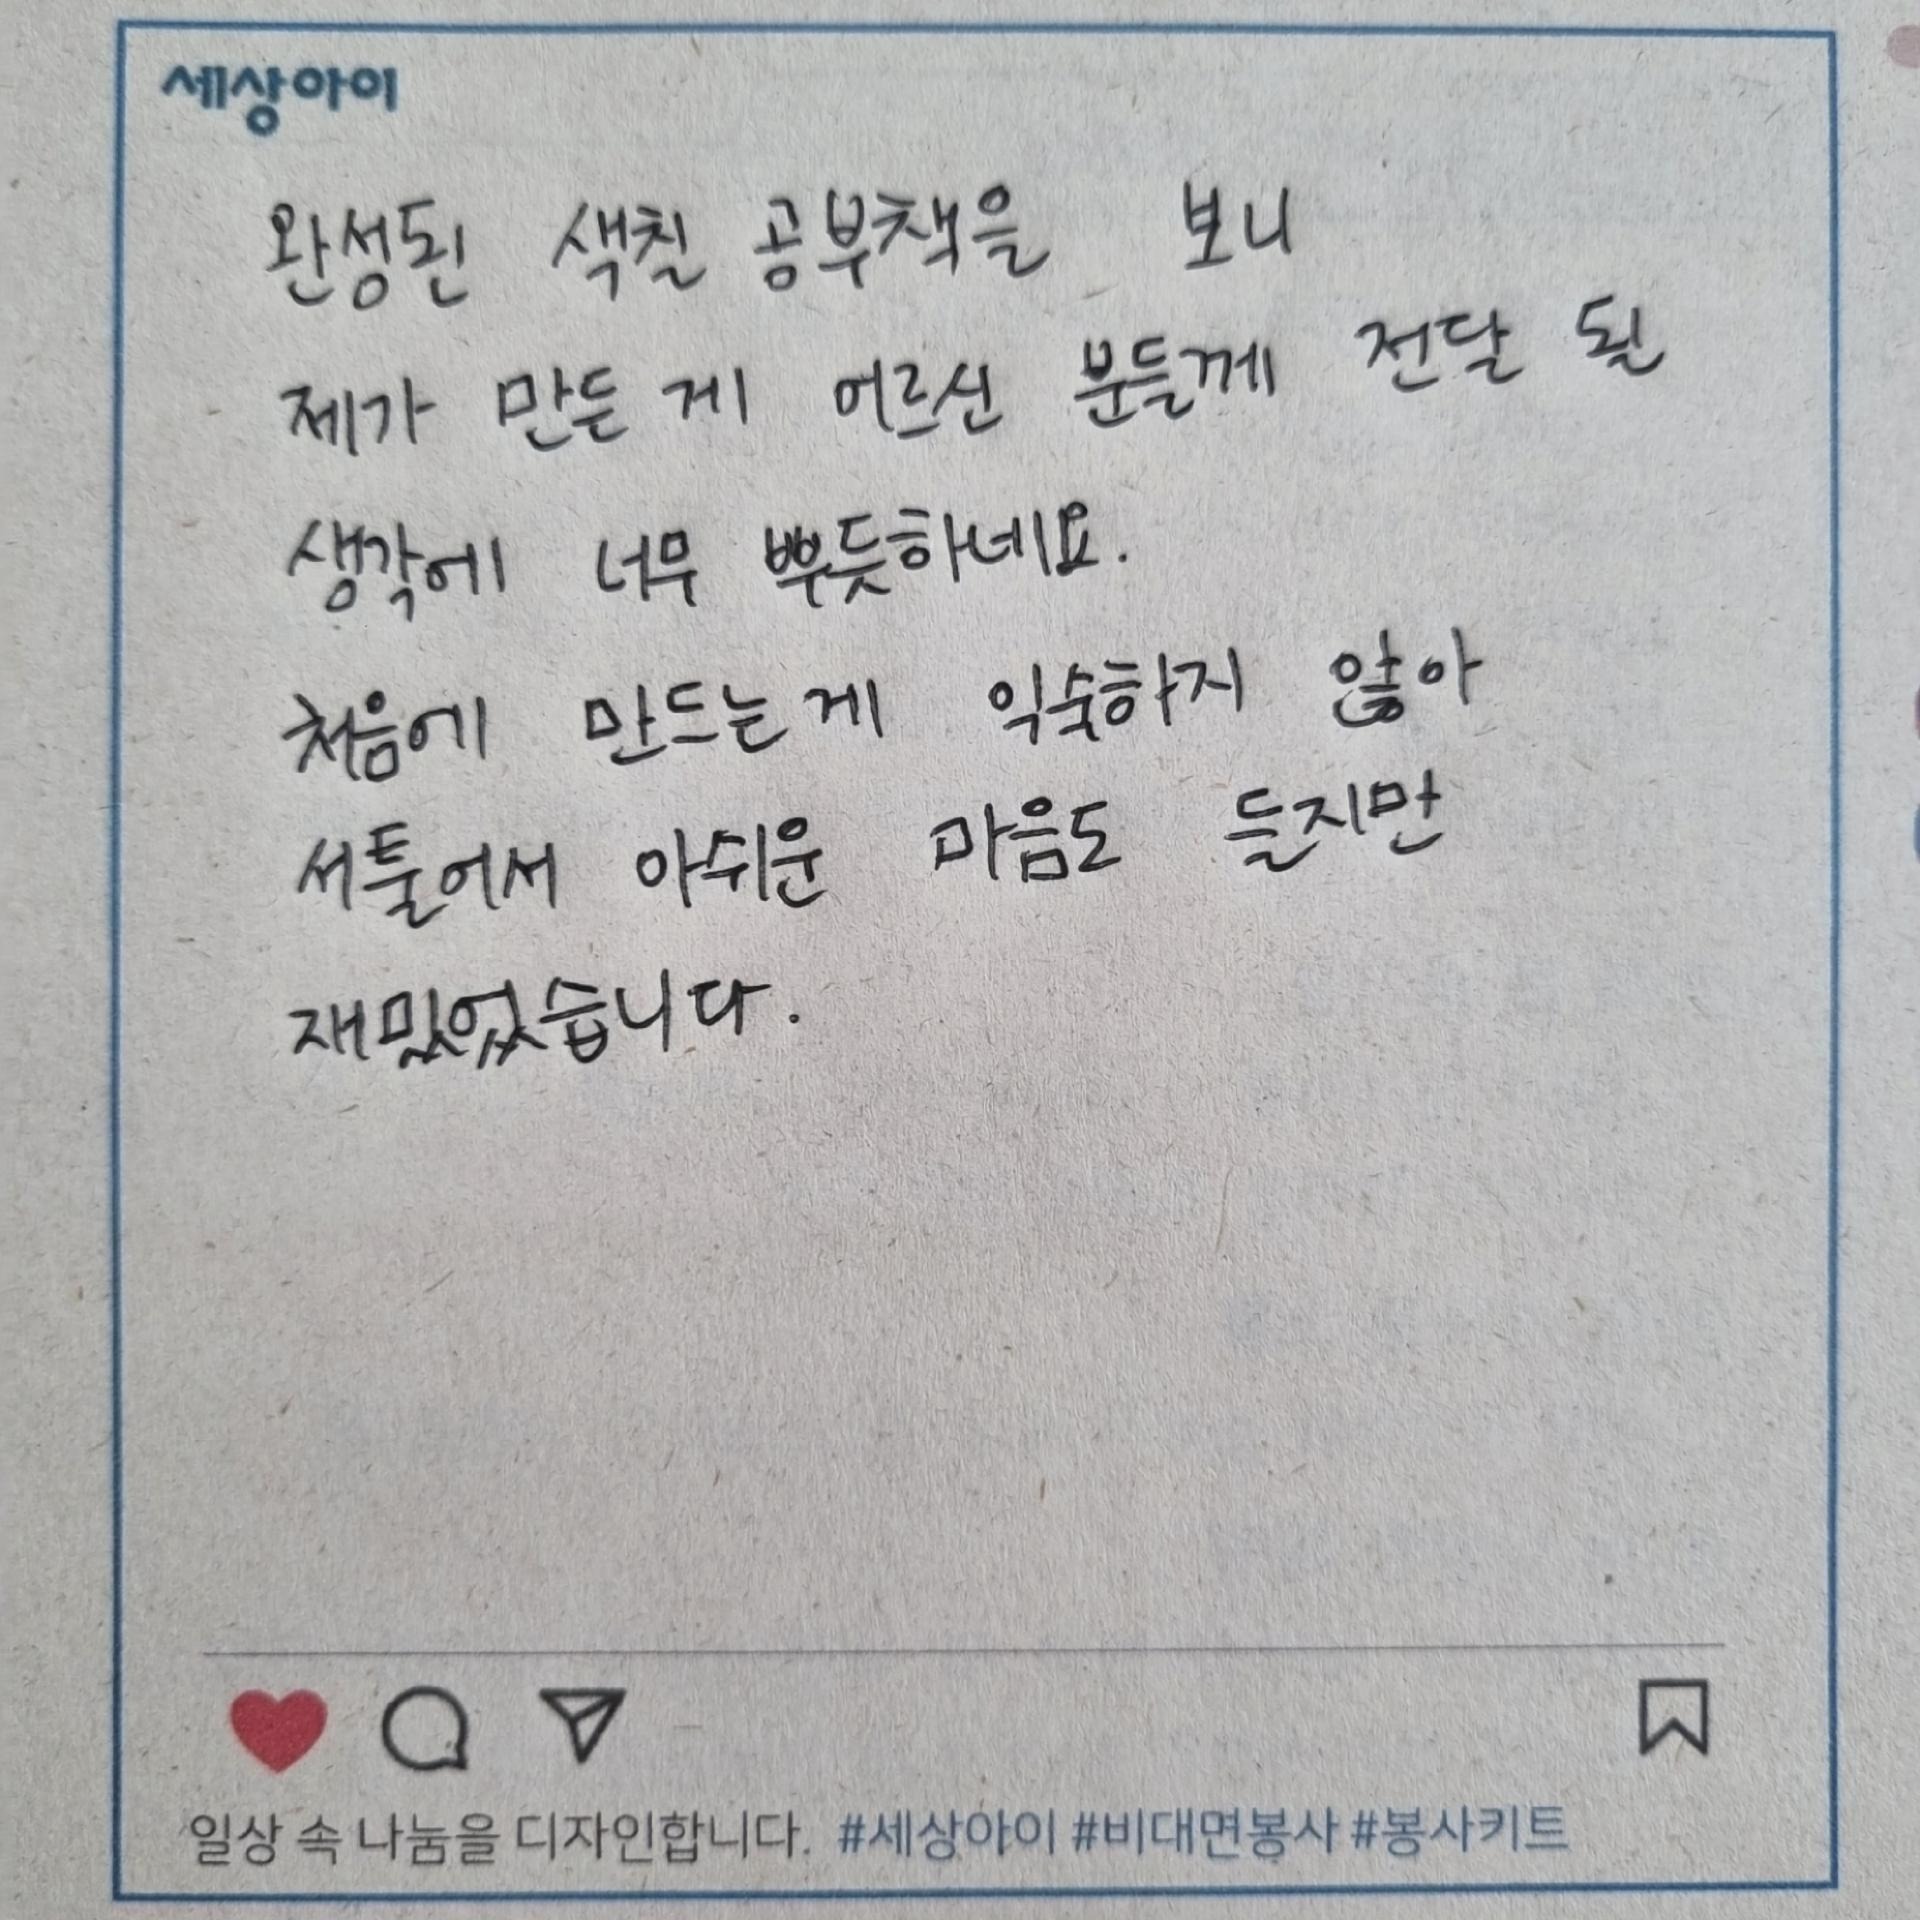 세상아이
완성된 색칠 공부책을 보니
제가 만든 게 어르신 분들께 전달 될
생각에 너무 뿌듯하네요.
처음에 만드는 게 익숙하지 않아
서툴어서 아쉬운 마음도 들지만
재밌었습니다.
일상 속 나눔을 디자인합니다. #세상아이 #비대면봉사 #봉사키트